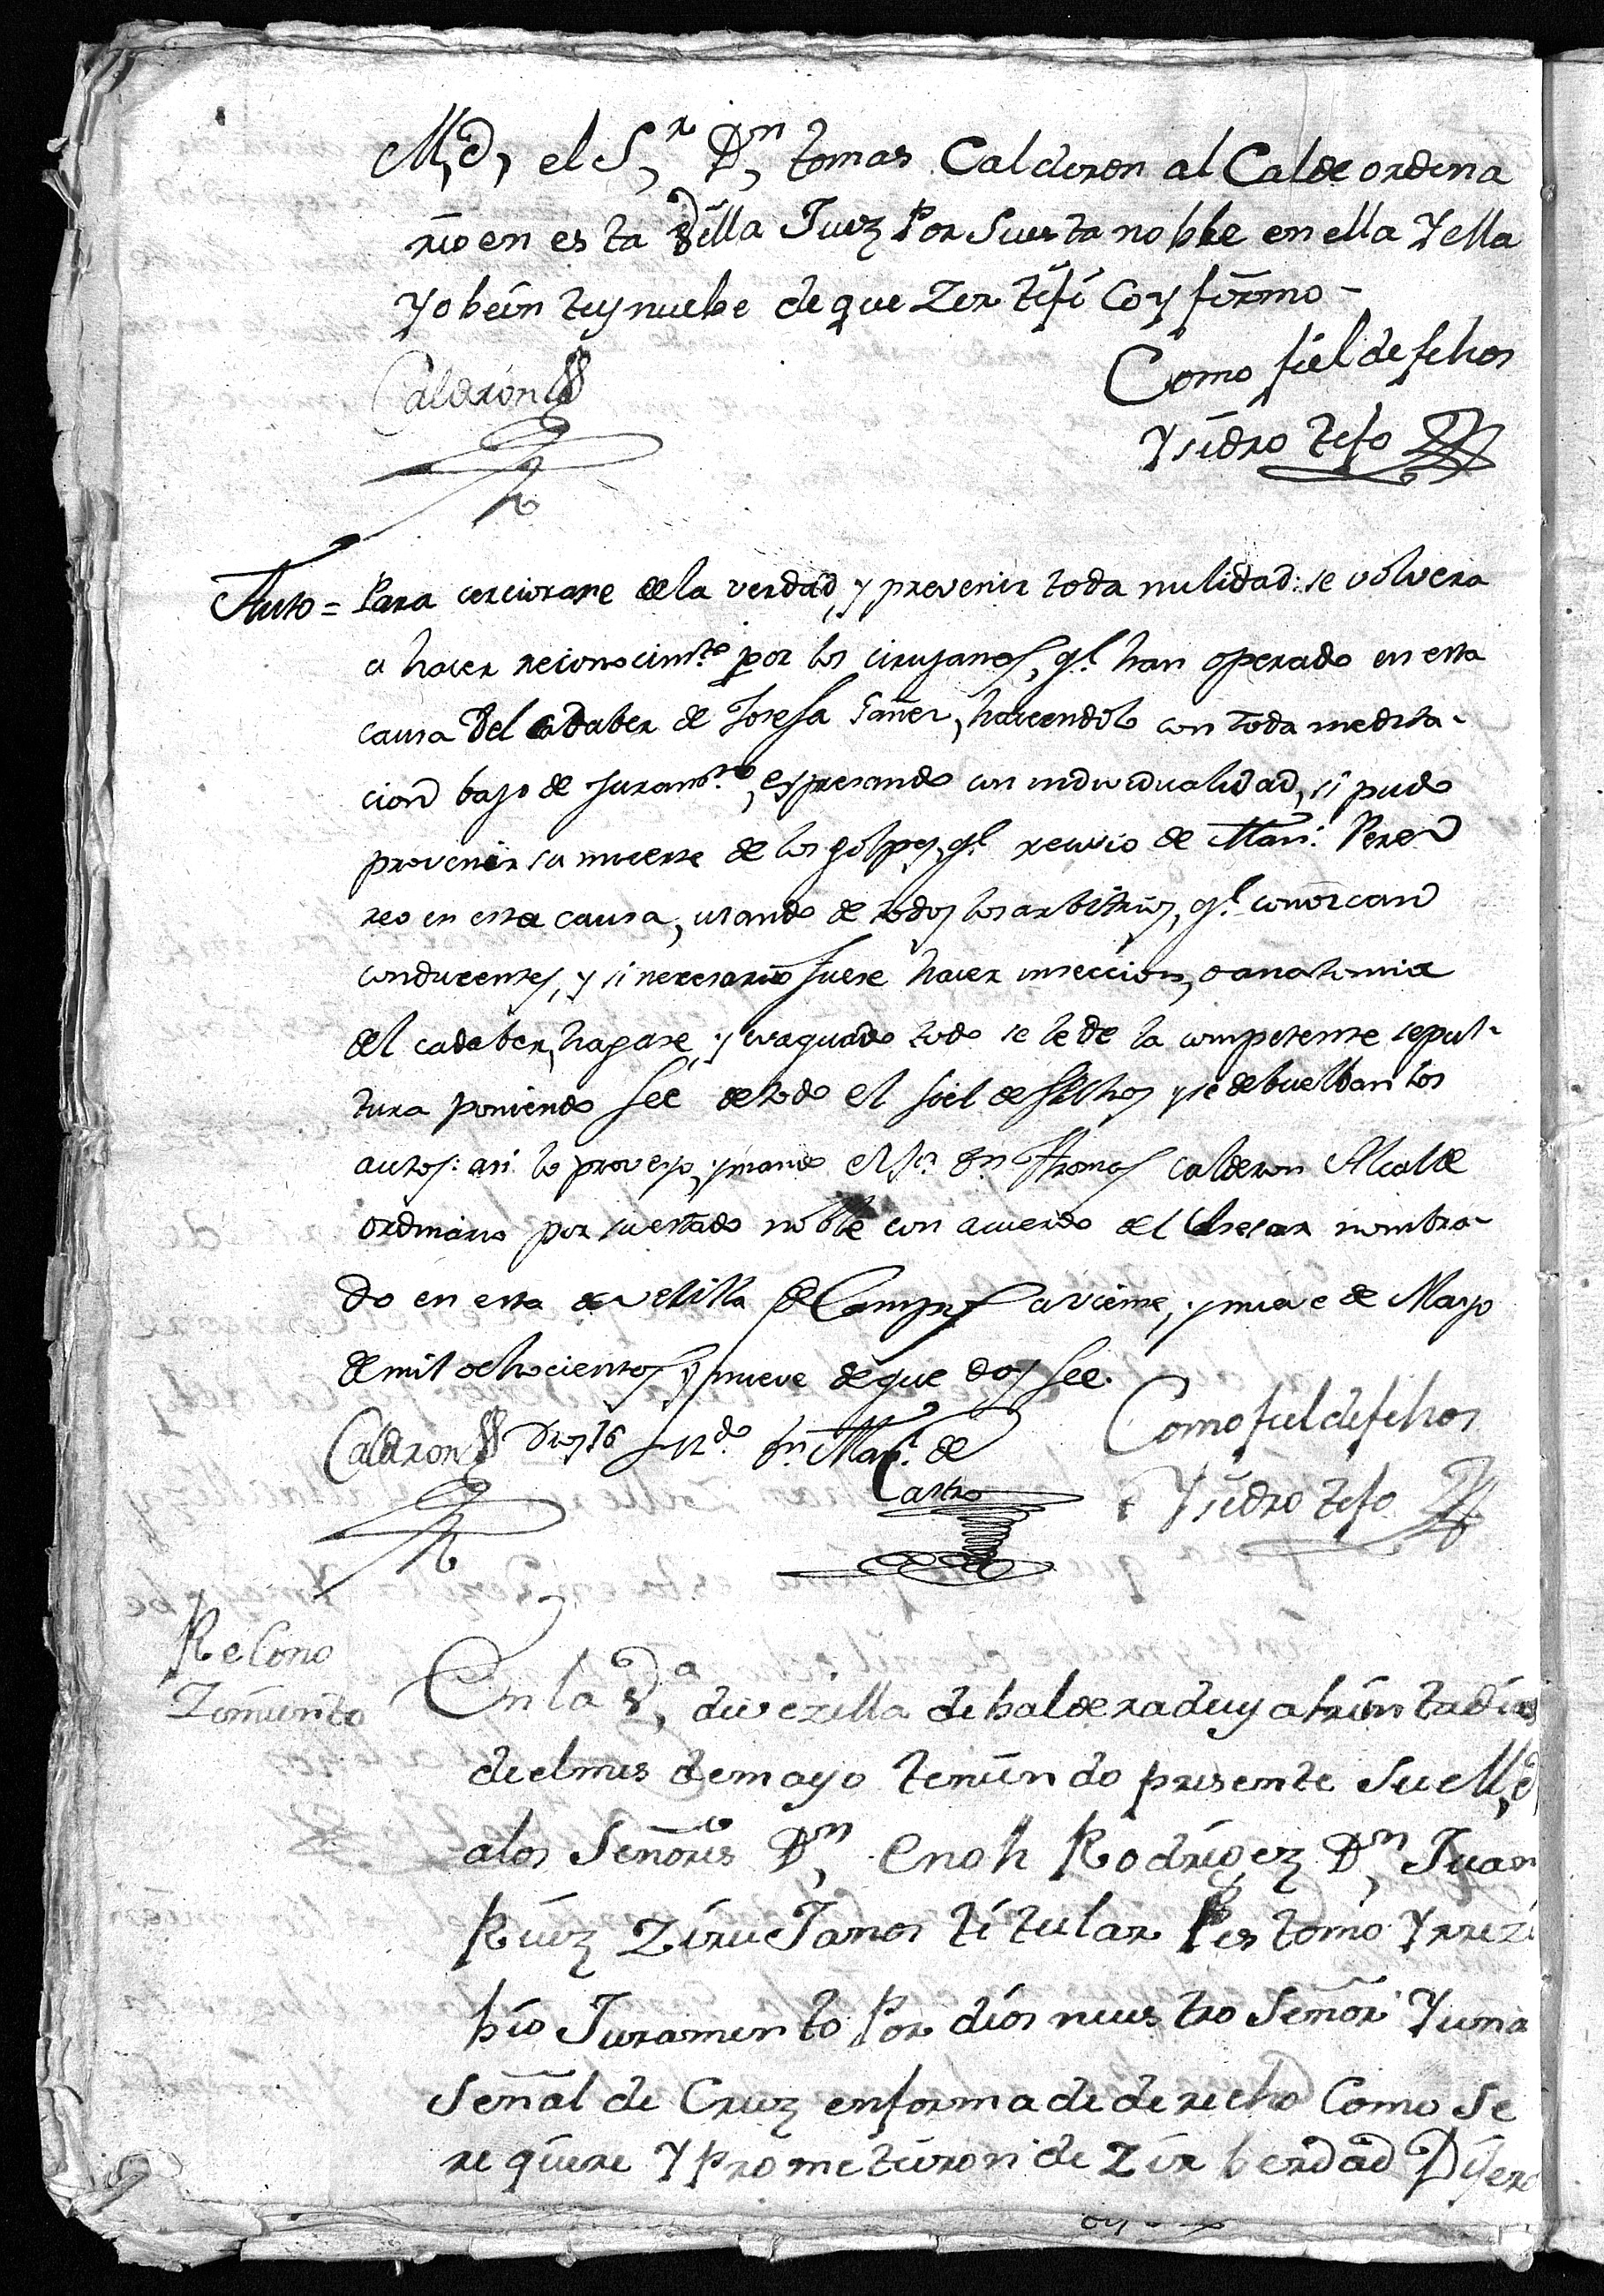 M,d, el S,r D,n tomas Calderon al Calde ordena
rio en es ta Villa Juez Por Su esta no ble en ella Y ella
Y o bein tey nuebe de que Zer tifi Co y firmo -
Calderon
Como fiel de fehos
Ysidro tefo
Auto = Para cerciorarse de la verdad, y prevenir toda nulidad: se volvera
a hacer reconocim.to por los cirujanos, q.e han operado en esta
causa del cadaber de Josefa , haciendolo con toda medita-
cion bajo de juram.to, expresando con individualidad, si pudo
provenir su muerte de los golpes, q.e recivio de Man.l Perez
reo en esta causa, usando de todos los arbitrios, q.e conozcan
conducentes, y si necesario fuere hacer inseccion, o anatomia
del cadaber, hagase, y evaquado todo se le de la competente sepul-
tura poniendo fee de todo el fiel de fechos y se debuelban los
autos: asi lo proveyo, y mando el S.r D.n Thomas Calderon Alcalde
ordinario por su estado noble con acuerdo del Asesor nombra-
do en esta de Velilla de Campos a veinte, y nueve de Mayo
de mil ochocientos y nueve de que doy fee.
Calderon Dros 16 Liz.do D.n Man.l de
Castro
Como fiel de fehos
Ysidro tefo
ReCono
Zimiento
En la V,a de vezilla de balderaduey a treinta dias
de el mes de mayo teniendo presente Su M,d
a los Señores D,n Enoh Rodrigez D,n Juan
Ruiz Ziru Janos ti tular Pes tomo Y rrezi
bio Juramento Por dios nuestro Señor Y una
Señal de Cruz en forma de derecho Como Se
re quiere Y Prometieron de Zir berdad Dijero